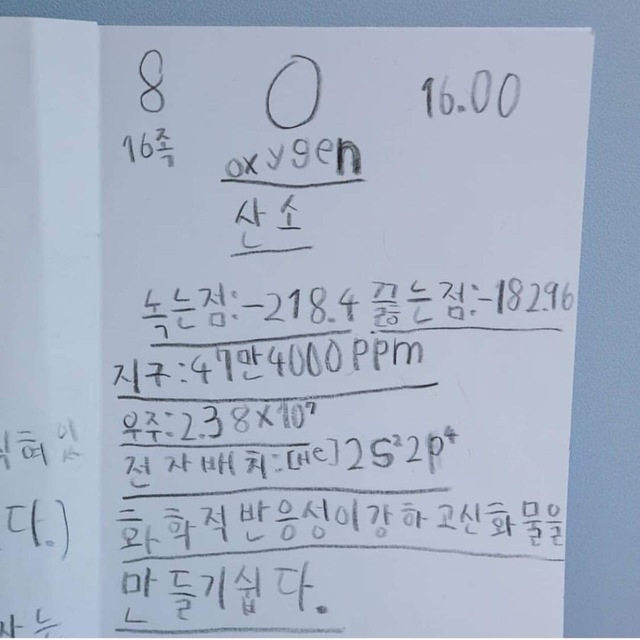 8 O 16.00
16족 oxygen
산소
녹는점:-218.4 끓는점:-182.96
지구:47만4000ppm
우주:2.38×10⁷
전자배치:[He]2s²2p⁴
화학적반응성이강하고산화물을
만들기쉽다.
다.)